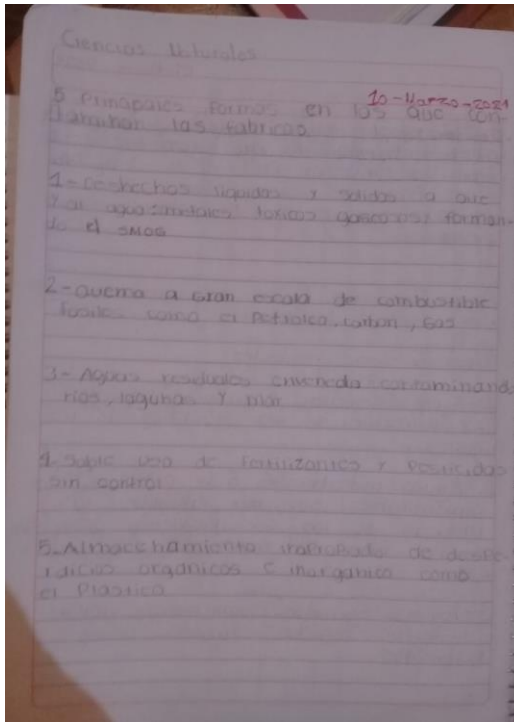 Ciencias Naturales
10-Marzo-2021
5 Principales formas en las que con-
taminan las fabricas
1- deshechos liquidos y solidos a aire
y al agua metales toxicos forman-
do el SMOG
2- Quema a Gran escala de combustible
fosiles como el Petroleo, carbon, Gas
3- Aguas residuales contaminando
rios, laguna y mar
4 uso de Fertilizantes y Pesticidas
sin control
5. Almacenamiento de despe-
rdicios organicos e inorganico como
el Plastico